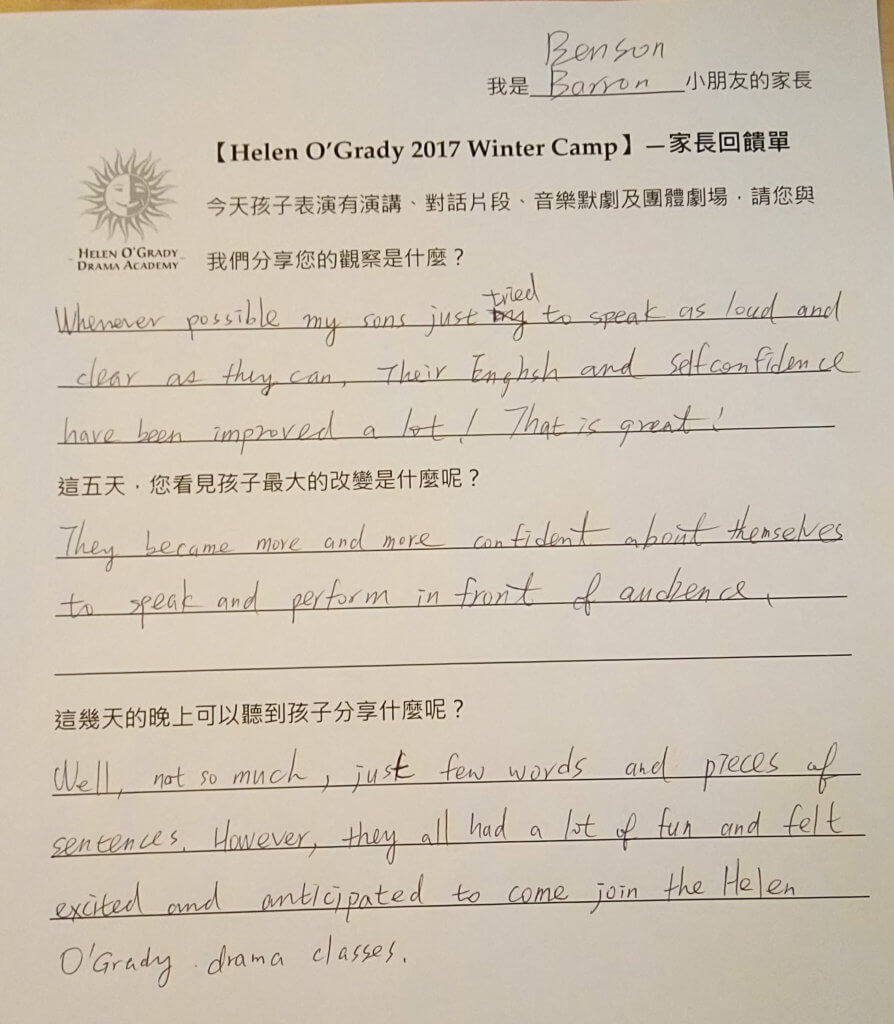 Benson
我是 Barron 小朋友的家長
【Helen O'Grady 2017 Winter Camp】—家長回饋單
今天孩子表演有演講、對話片段、音樂默劇及團體劇場，請您與
HELEN O'GRADY
DRAMA ACADEMY
我們分享您的觀察是什麼？
Whenever possible my sons just tried to speak as loud and
clear as they can, Their English and selfconfidence
have been improved a lot! That is great!
這五天，您看見孩子最大的改變是什麼呢？
They became more and more confident about themselves
to speak and perform in front of audience.
這幾天的晚上可以聽到孩子分享什麼呢？
Well, not so much, just few words and pieces of
sentences. However, they all had a lot of fun and felt
excited and anticipated to come join the Helen
O'Grady drama classes.